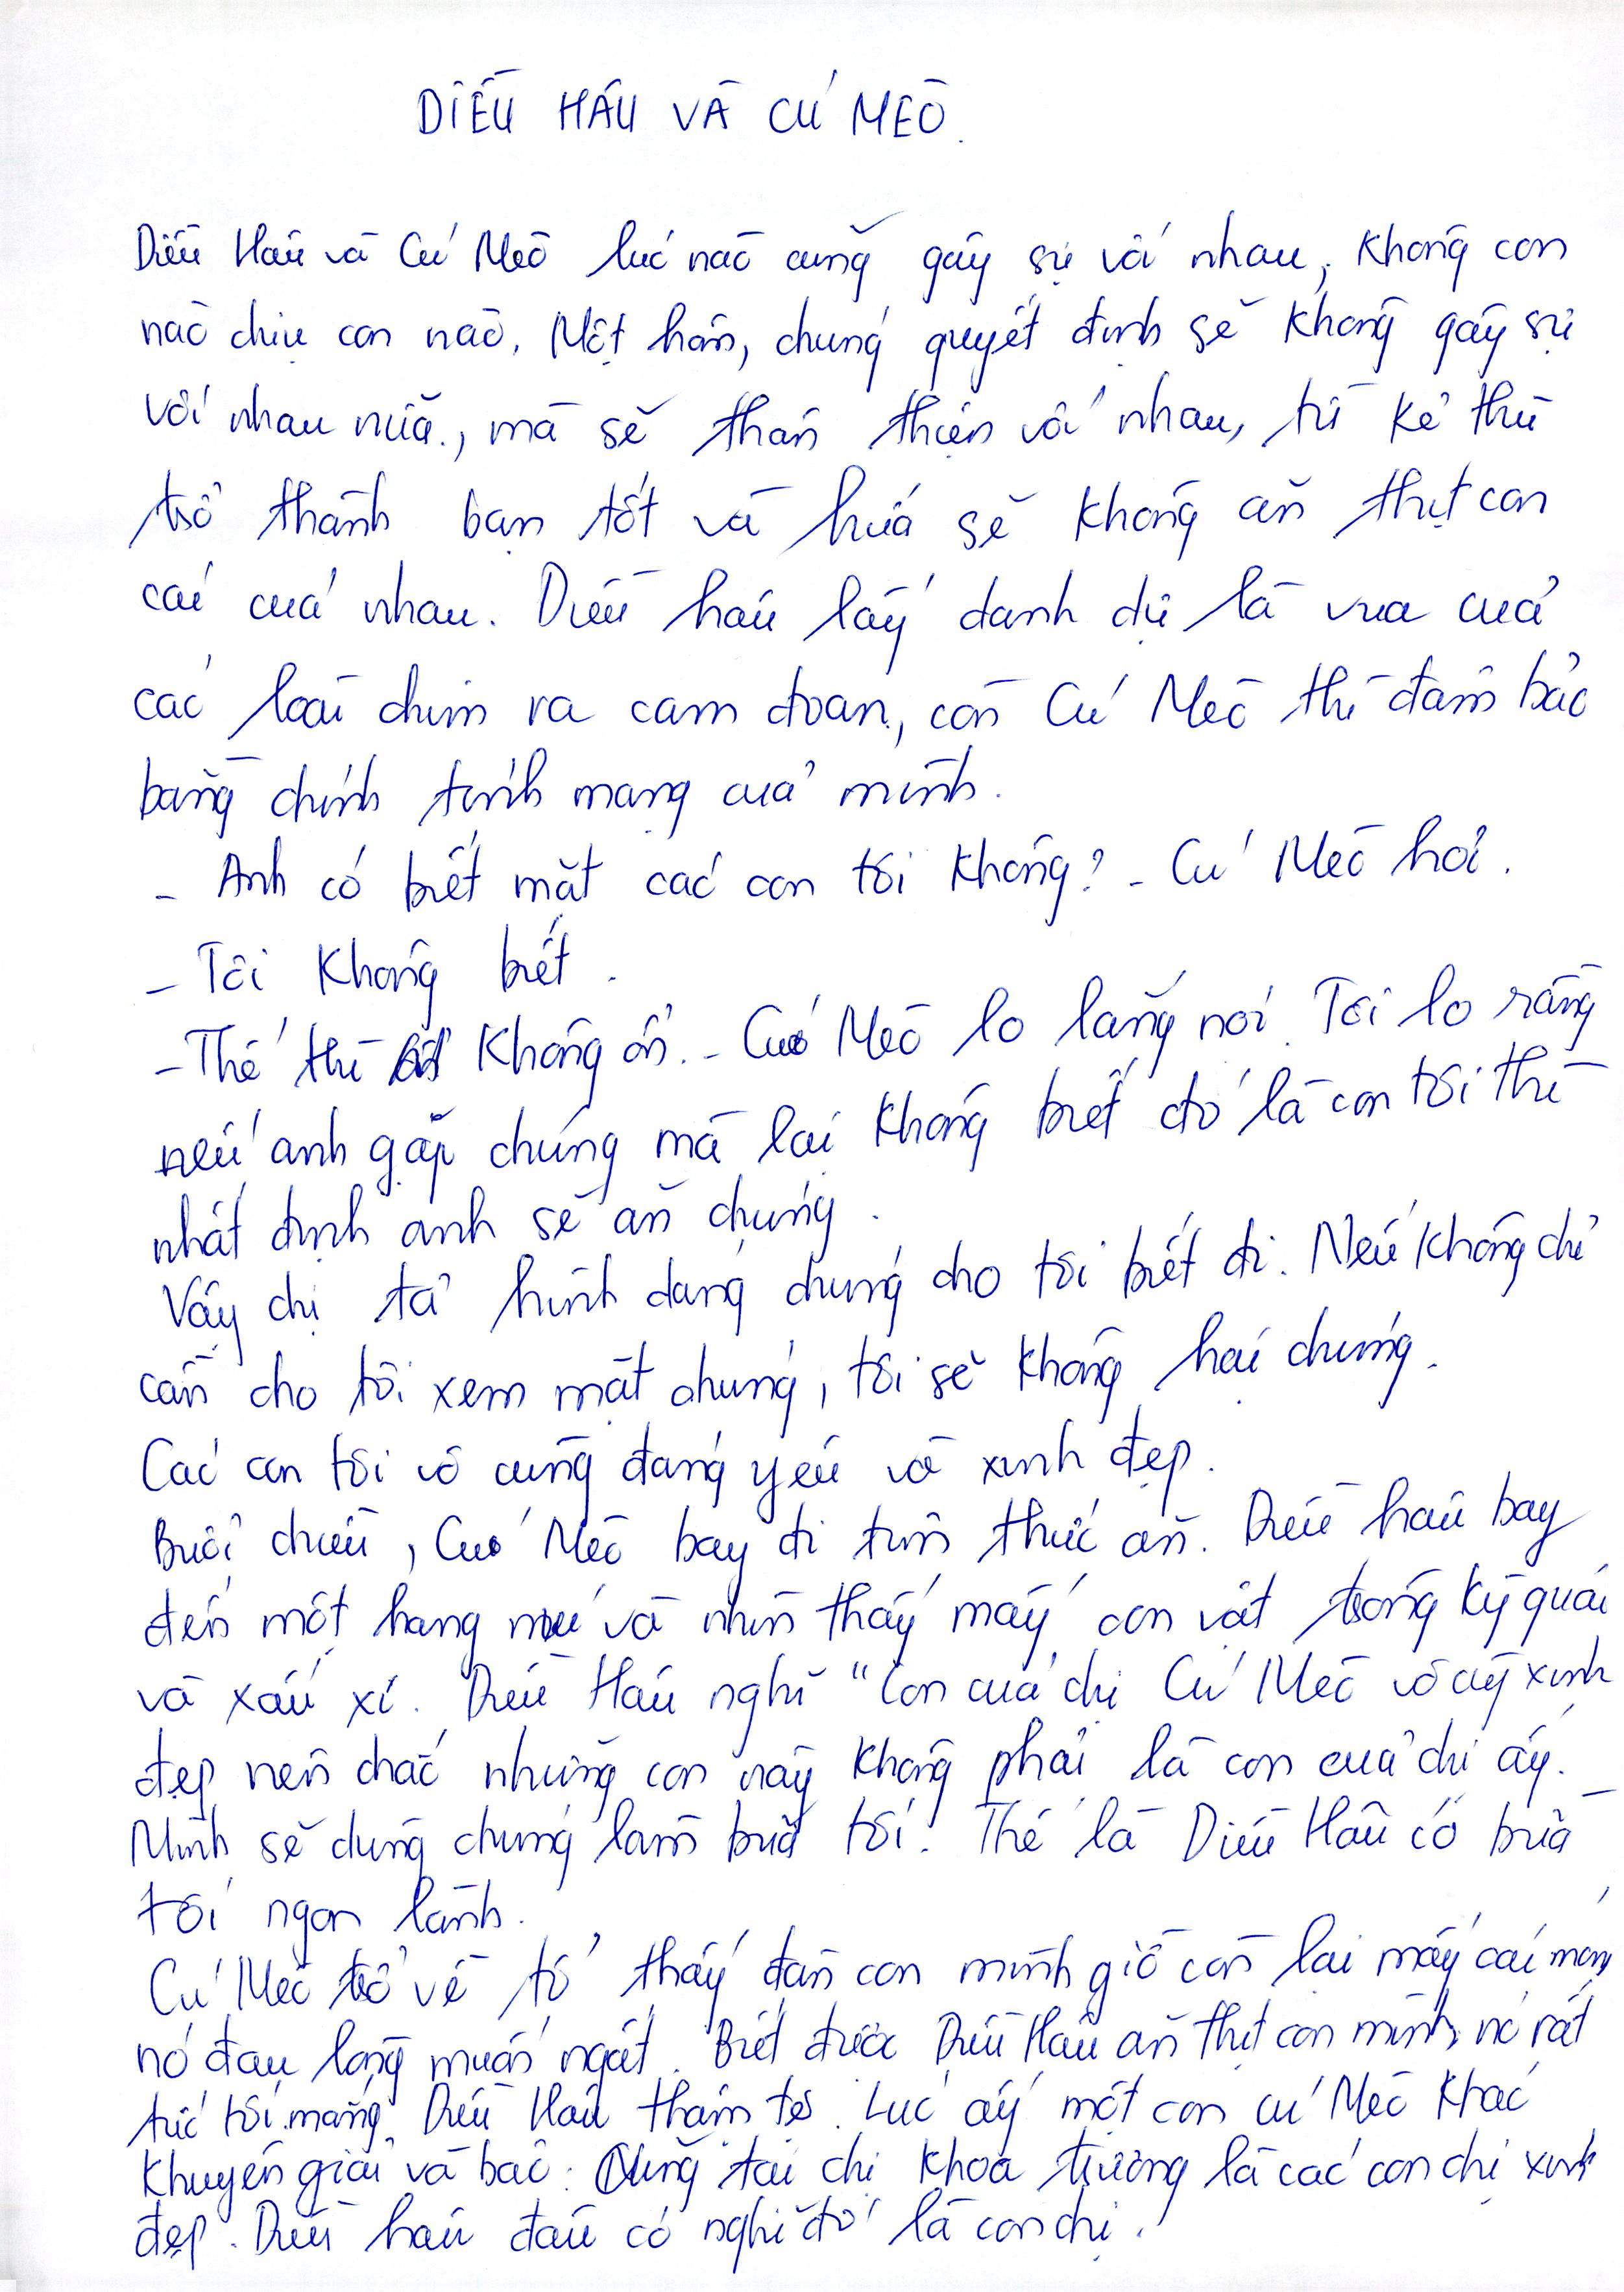 DIỀU HÂU VÀ CÚ MÈO.
Diều Hâu và Cú Mèo lúc nào cũng gây sự với nhau, không con
nào chịu con nào. Một hôm, chúng quyết định sẽ không gây sự
với nhau nữa, mà sẽ thân thiện với nhau, từ kẻ thù
trở thành bạn tốt và hứa sẽ không ăn thịt con
cái của nhau. Diều hâu lấy danh dự là vua của
các loài chim ra cam đoan, còn Cú Mèo thì đảm bảo
bằng chính tính mạng của mình.
- Anh có biết mặt các con tôi không? - Cú Mèo hỏi.
- Tôi không biết.
- Thế thì không ổn. - Cú Mèo lo lắng nói. Tôi lo rằng
nếu anh gặp chúng mà lại không biết đó là con tôi thì
nhất định anh sẽ ăn chúng.
Vậy chị tả hình dạng chúng cho tôi biết đi. Nếu không chỉ
cần cho tôi xem mặt chúng, tôi sẽ không hại chúng.
Các con tôi vô cùng đáng yêu và xinh đẹp.
Buổi chiều, Cú Mèo bay đi tìm thức ăn. Diều hâu bay
đến một hang núi và nhìn thấy mấy con vật trông kỳ quái
và xấu xí. Diều Hâu nghĩ "Con của chị Cú Mèo vô cùng xinh
đẹp nên chắc những con này không phải là con của chị ấy.
Mình sẽ dùng chúng làm bữa tối. Thế là Diều Hâu có bữa
tối ngon lành.
Cú Mèo trở về tổ thấy đàn con mình giờ còn lại mấy cái móng
nó đau lòng muốn ngất. Biết được Diều Hâu ăn thịt con mình, nó rất
tức tối mắng Diều Hâu thậm tệ. Lúc ấy một con cú Mèo khác
khuyên giải và bảo: Cũng tại chị khoa trương là các con chị xinh
đẹp. Diều hâu đâu có nghĩ đó là con chị.